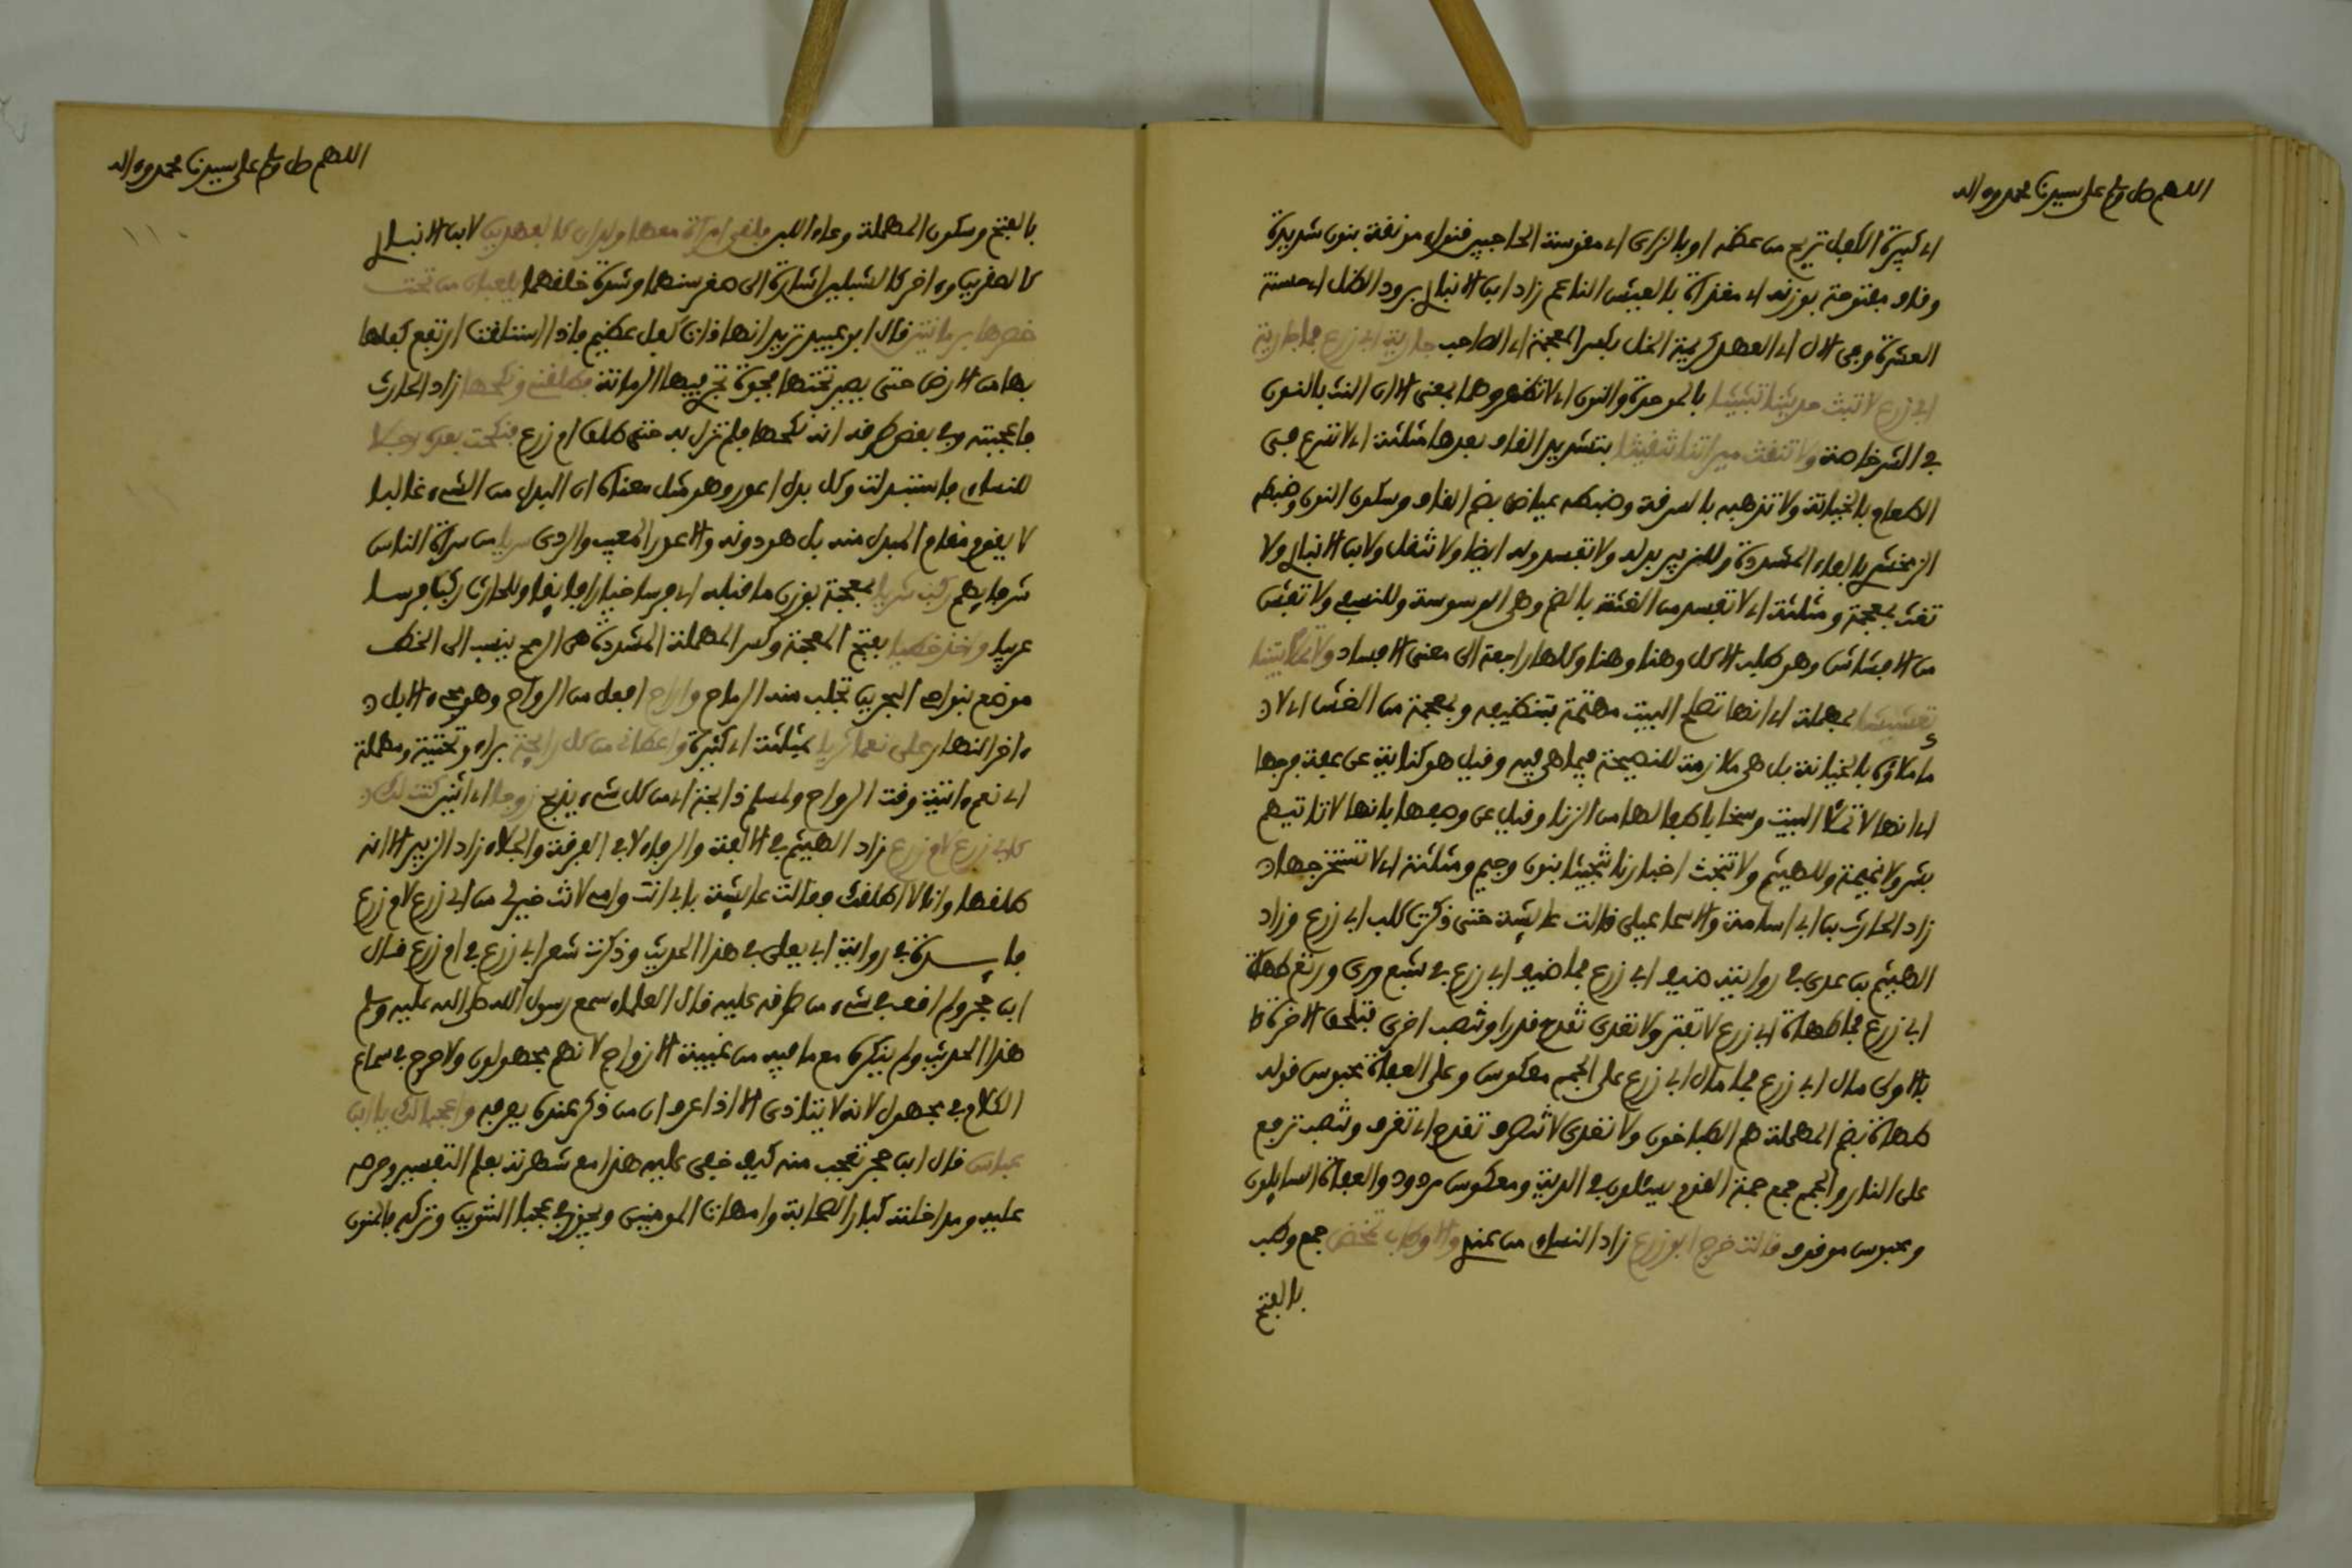 اللهم صل وسلم على سيدنا محمد وءاله
اي كبيرة الكفل ترتج من عظمه او بالزاي اي مقوسة الحاجبين قنواء مونقة بنون شديدة
وقاف مفتوحة بوزنه اي مغذاة بالعيش الناعم زاد ابن الانباري برود الظل اي حسنة
العشرة وفي الال اي العهد كريمة الخل بكسر المعجمة اي الصاحب جارية ابي زرع فما جارية
ابي زرع لا تبث حديثنا تبثيثا بالموحدة والنون اي لا تظهره وهما بمعنى الا ان النث بالنون
في الشر خاصة ولا تنقث ميرتنا تنقيثا بتشديد القاف بعدها مثلثة اي لا تسرع في
الطعام بالخيانة ولا تذهبه بالسرقة وضبطه عياض بضم القاف وسكون النون وضبطه
الزمخشري بالفاء المشددة وللزبير بدله ولا تفسد وله ايضا ولا تنقل ولابن الانباري ولا
تغث بمعجمة ومثلثة اي لا تفسد من الغثة بالضم وهي الوسوسة وللنسفي ولا تفش
من الافشاش وهو طلب الاكل وهنا وهنا وكلها راجعة الى معنى الافساد ولا تملا بيتنا
تعشيشا بمهملة اي انها تصلح البيت مهتمة بتنظيفه وبمعجمة من الغش اي لا
ما ملاته بالخيانة بل هي ملازمة للنصيحة فيما هي فيه وقيل هو كناية عن عفة فرجها
اي انها لا تملا البيت وسخا باطفالها من الزنا وقيل عن وصفها بانها لا تاتيهم
بشر ولا نميمة وللهيثم ولا تنجث اخبارنا تنجيثا بنون وجيم ومثلثة اي لا تستخرجها
زاد الحارث بن ابي اسامة والاسماعيلي قالت عايشة حتى ذكرت كلب ابي زرع وزاد
الهيثم بن عدي في روايته ضيف ابي زرع فما ضيف ابي زرع في شبع وري ورتع طهاة
ابي زرع فما طهاة ابي زرع لا تفتر ولا تعدى تقدح قدرا وتنصب اخرى فتلحق الاخرة
بالاولى مال ابي زرع فما مال ابي زرع على الجمم معكوس وعلى العفاة محبوس قوله
طهاة بضم المهملة هم الطباخون ولا تعدى لا تصرف تقدح اي تغرف وتنصب ترفع
على النار والجمم جمع جمة القوم يسئلون في الدية ومعكوس مردود والعفاة السايلون
ومحبوس موقوف قالت خرج ابو زرع زاد النساءي من عندي والاوطاب تمخض جمع وطب
بالفتح
اللهم صل وسلم على سيدنا محمد وءاله
١١٠
بالفتح وسكون المهملة وعاء اللبن فلقي امراة معها ولدان كالفهدين لابن الانباري
كالصقرين وءاخر كالشبلين اشارة الى صغر سنهما وشدة خلقهما يلعبان من تحت
خصرها برمانتين قال ابو عبيد تريد انها ذات كفل عظيم فاذا استلقت ارتفع كفلها
بها من الارض حتى يصير تحتها فجوة تجري فيها الرمانة فطلقني ونكحها زاد الحارث
فاعجبته وفي بعض طرقه انه نكحها فلم تزل به حتى طلق ام زرع فنكحت بعده رجلا
للنساءي فاستبدلت وكل بدل اعور وهو مثل معناه ان البدل من الشيء غالبا
لا يقوم مقام المبدل منه بل هو دونه والاعور المعيب والردي سريا من سراة الناس
شرفايهم ركب شريا بمعجمة بوزن ما قبله اي فرسا خيارا فايقا وللحارث ركب فرسا
عربيا واخذ خطيا بفتح المعجمة وكسر المهملة المشددة هي الرمح ينسب الى الخط
موضع بنواحي البحرين تجلب منه الرماح واراح افعل من الرواح وهو مجيء الابل
ءاخر النهار على نعما ثريا بمثلثة اي كثيرة واعطاني من كل رايحة براء وتحتية ومهملة
اي نعم ءاتية وقت الرواح ولمسلم ذابحة اي من كل شيء يذبح زوجا اي اثنين كنت لك
كابي زرع لام زرع زاد الهيثم في الالفة والرفاء لا في الفرقة والجلاء زاد الزبير الا انه
طلقها وانا لا اطلقك وقالت عايشة بابي انت وامي لانت خير لي من ابي زرع لام زرع
فايـــدة في رواية ابي يعلى في هذا الحديث وذكرت شعر ابي زرع في ام زرع قال
ابن حجر ولم اقف في شيء من طرقه عليه قال العلماء سمع رسول الله صلى الله عليه وسلم
هذا الحديث ولم ينكره مع ما فيه من غيبة الازواج لانهم مجهولون ولا حرج في سماع
الكلام في مجهول لانه لا يتاذى الا اذا عرف ان من ذكر عنده يعرفه واعجبا لك يا ابن
عباس قال ابن حجر تعجب منه كيف خفي عليه هذا مع شهرته بعلم التفسير وحرصه
عليه ومداخلته كبار الصحابة وامهات المومنين ويجوز في عجبا التنوين وتركه فالمنون